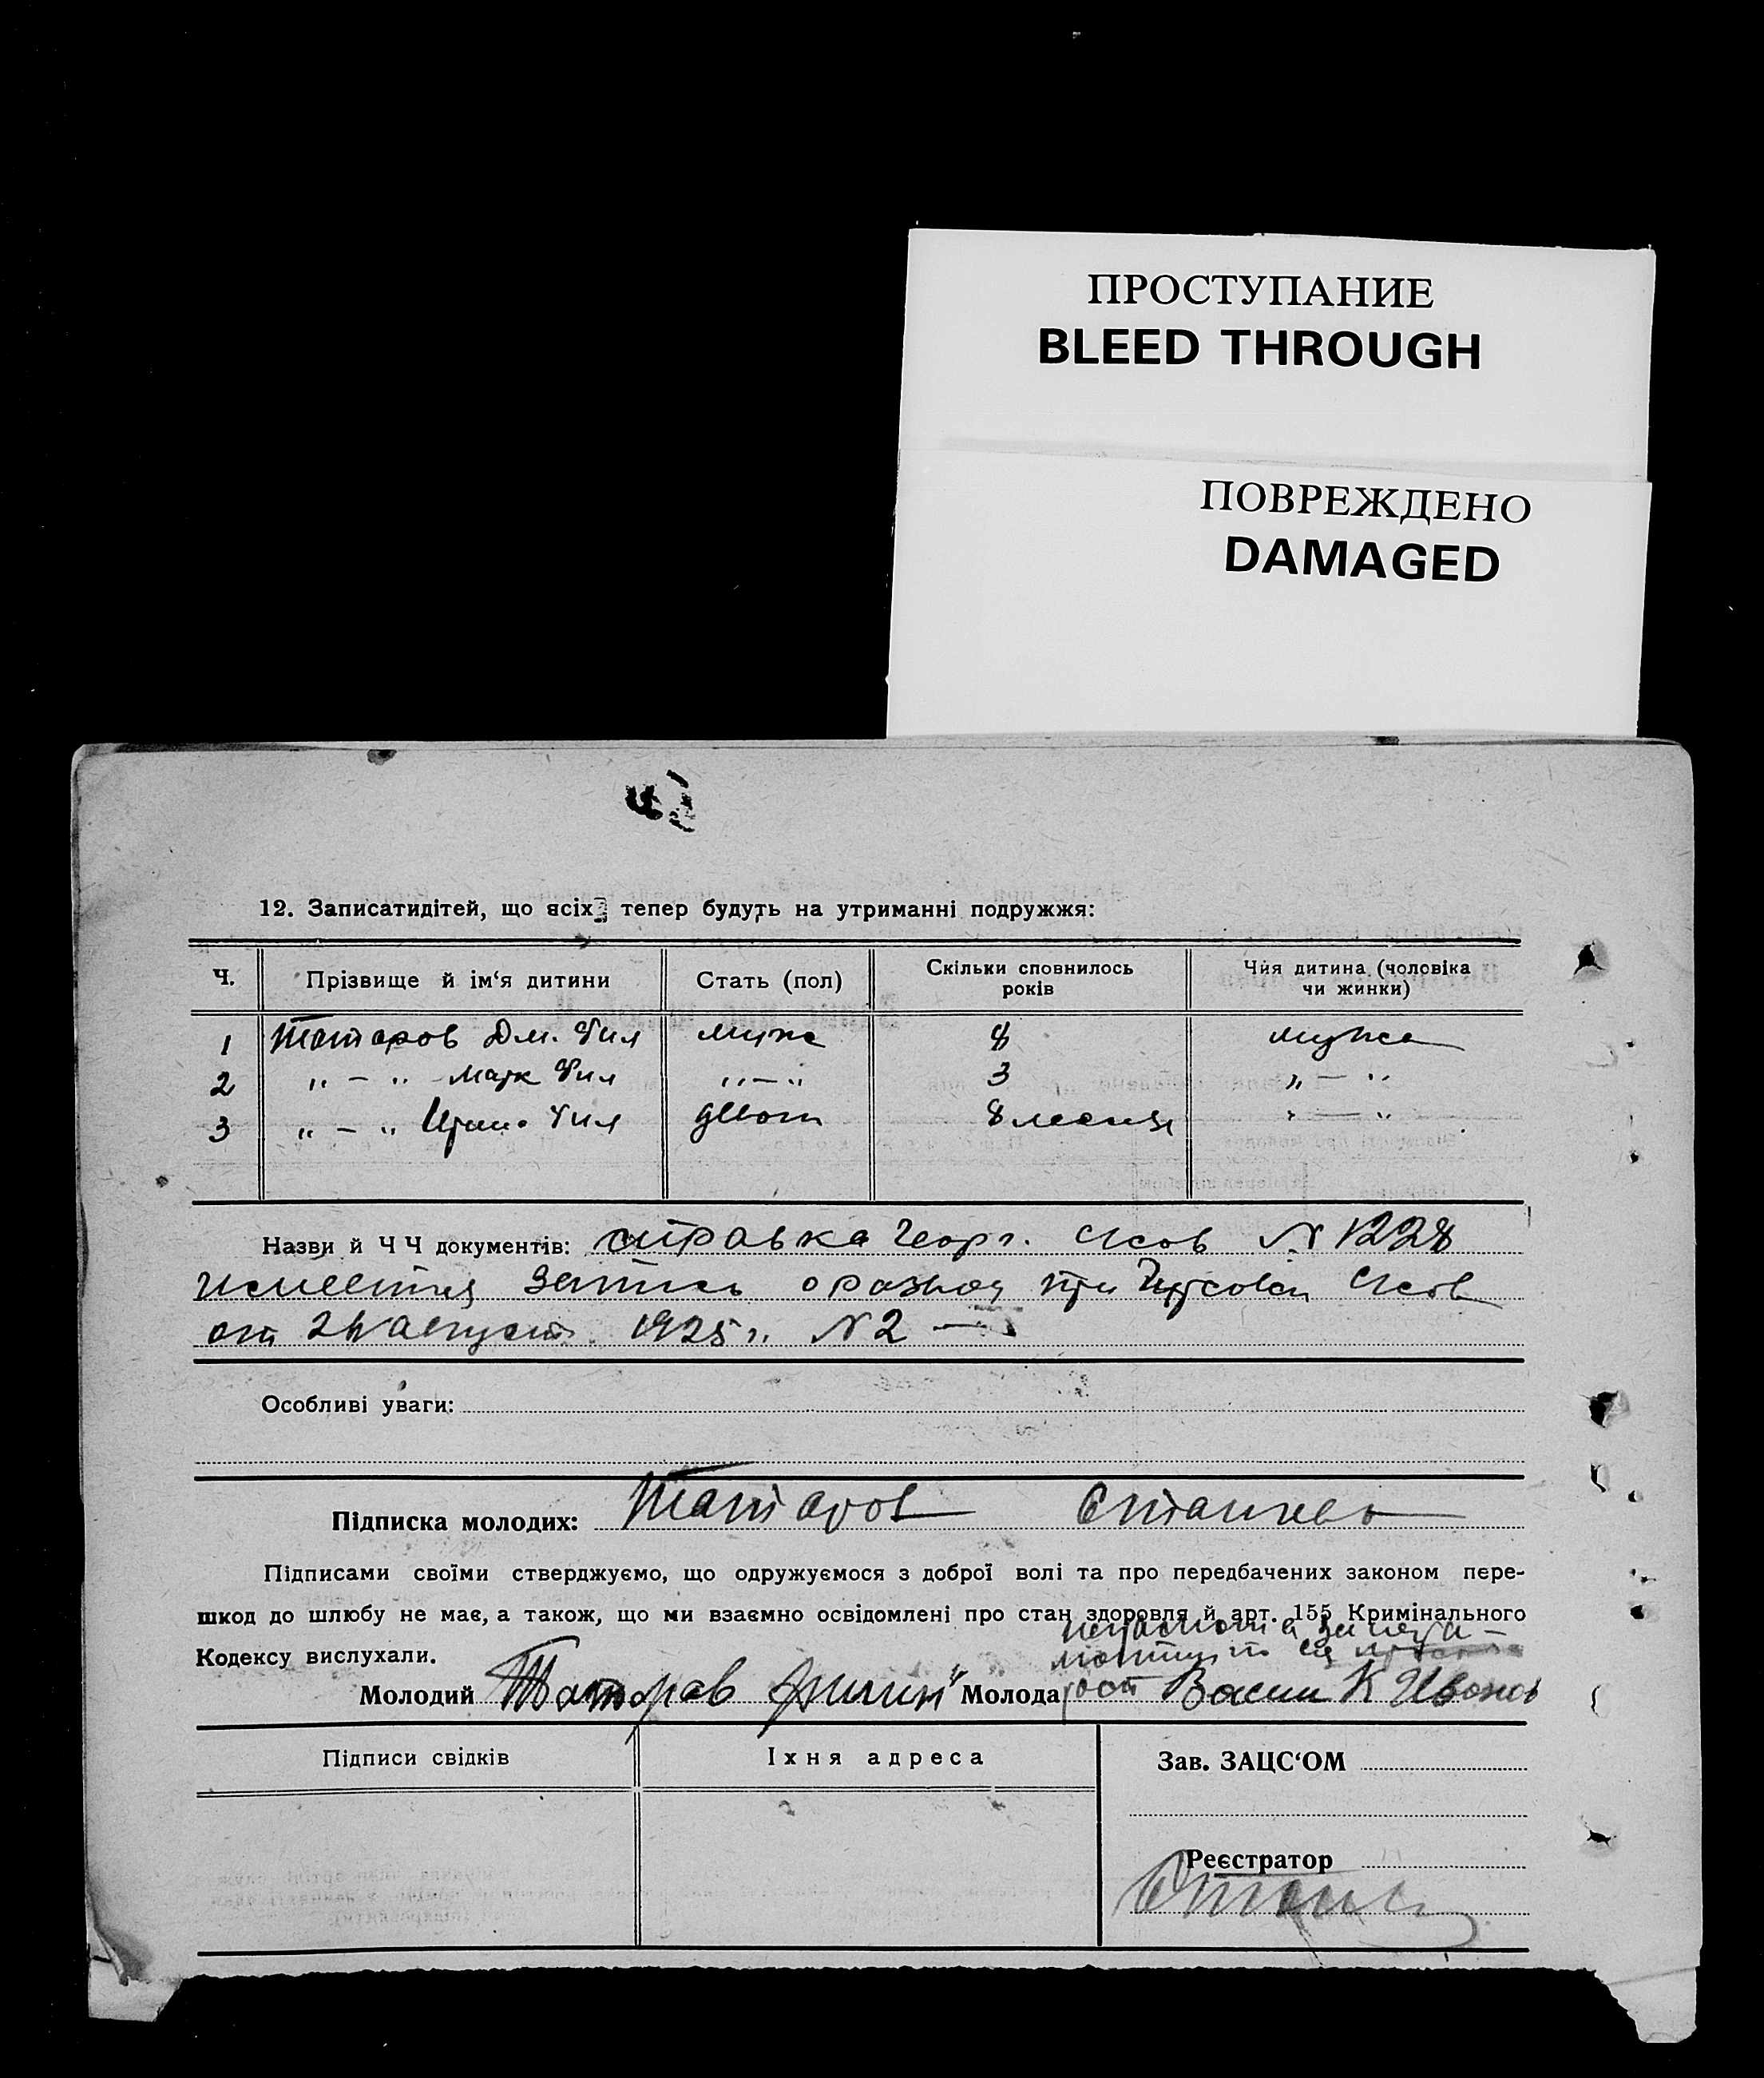 ПРОСТУПАНИЕ
BLEED THROUGH
ПОВРЕЖДЕНО
DAMAGED
12. Записатидітей, що всіх тепер будуть на утриманні подружжя:
Ч. Прізвище й ім‘я дитини Стать (пол) Скільки сповнилось років Чия дитина (чоловіка чи жинки)
1 Татаров Дм. Фил мужс 8 мужа
2 „ – „ Марк Фил „ – „ 3 „ – „
3 „ – „ Ирин. Фил 8 месяця „ – „
Назви й Ч Ч документів: справка Георг. с/сов N 1228
имеется запись о разводе при с/сов
от августа 1925 г. N 2 –
Особливі уваги:
Підписка молодих: Татаров
Підписами своїми стверджуємо, що одружуємося з доброї волі та про передбачених законом пере-
шкод до шлюбу не має, а також, що ми взаємно освідомлені про стан здоровля й арт. 155 Кримінального
Кодексу вислухали.
неграмотна за нея
Молодий Татаров Филип Молода Васил К Иванов
Підписи свідків Їхня адреса Зав. ЗАЦС‘ОМ
Реєстратор